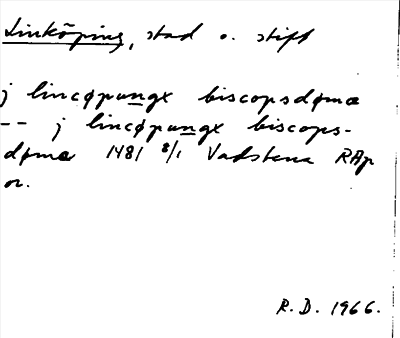 Linköping, stad o. stift
j lincøpungx biscopsdømæ
-- j lincøpungx biscops-
dømæ 1481 8/1 Vadstena RAp
or.
R.D. 1966.